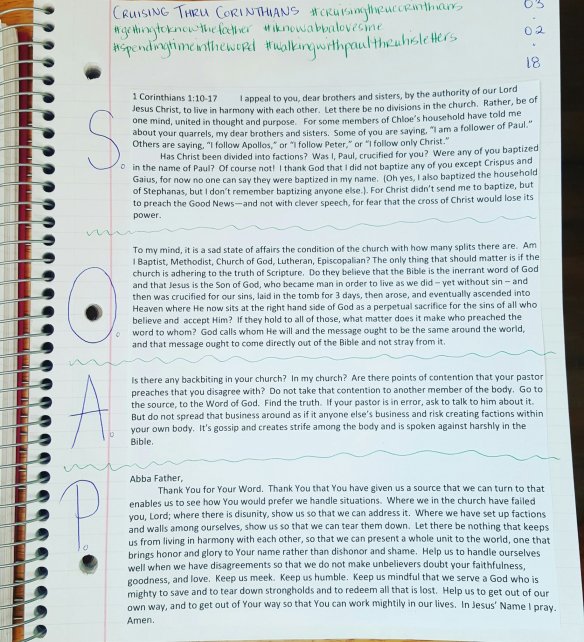 CRUISING THRU CORINTHIANS #cruisingthrucorinthians
03
#gettingtoknowthefather #iknowabbalovesme
.
02
#spendingtimeintheword #walkingwithpaulthruhisletters
.
18
S.
1 Corinthians 1:10-17 I appeal to you, dear brothers and sisters, by the authority of our Lord
Jesus Christ, to live in harmony with each other. Let there be no divisions in the church. Rather, be of
one mind, united in thought and purpose. For some members of Chloe's household have told me
about your quarrels, my dear brothers and sisters. Some of you are saying, "I am a follower of Paul."
Others are saying, "I follow Apollos," or "I follow Peter," or "I follow only Christ."
Has Christ been divided into factions? Was I, Paul, crucified for you? Were any of you baptized
in the name of Paul? Of course not! I thank God that I did not baptize any of you except Crispus and
Gaius, for now no one can say they were baptized in my name. (Oh yes, I also baptized the household
of Stephanas, but I don't remember baptizing anyone else.). For Christ didn't send me to baptize, but
to preach the Good News—and not with clever speech, for fear that the cross of Christ would lose its
power.
O.
To my mind, it is a sad state of affairs the condition of the church with how many splits there are. Am
I Baptist, Methodist, Church of God, Lutheran, Episcopalian? The only thing that should matter is if the
church is adhering to the truth of Scripture. Do they believe that the Bible is the inerrant word of God
and that Jesus is the Son of God, who became man in order to live as we did – yet without sin – and
then was crucified for our sins, laid in the tomb for 3 days, then arose, and eventually ascended into
Heaven where He now sits at the right hand side of God as a perpetual sacrifice for the sins of all who
believe and accept Him? If they hold to all of those, what matter does it make who preached the
word to whom? God calls whom He will and the message ought to be the same around the world,
and that message ought to come directly out of the Bible and not stray from it.
A.
Is there any backbiting in your church? In my church? Are there points of contention that your pastor
preaches that you disagree with? Do not take that contention to another member of the body. Go to
the source, to the Word of God. Find the truth. If your pastor is in error, ask to talk to him about it.
But do not spread that business around as if it anyone else's business and risk creating factions within
your own body. It's gossip and creates strife among the body and is spoken against harshly in the
Bible.
P.
Abba Father,
Thank You for Your Word. Thank You that You have given us a source that we can turn to that
enables us to see how You would prefer we handle situations. Where we in the church have failed
you, Lord; where there is disunity, show us so that we can address it. Where we have set up factions
and walls among ourselves, show us so that we can tear them down. Let there be nothing that keeps
us from living in harmony with each other, so that we can present a whole unit to the world, one that
brings honor and glory to Your name rather than dishonor and shame. Help us to handle ourselves
well when we have disagreements so that we do not make unbelievers doubt your faithfulness,
goodness, and love. Keep us meek. Keep us humble. Keep us mindful that we serve a God who is
mighty to save and to tear down strongholds and to redeem all that is lost. Help us to get out of our
own way, and to get out of Your way so that You can work mightily in our lives. In Jesus' Name I pray.
Amen.